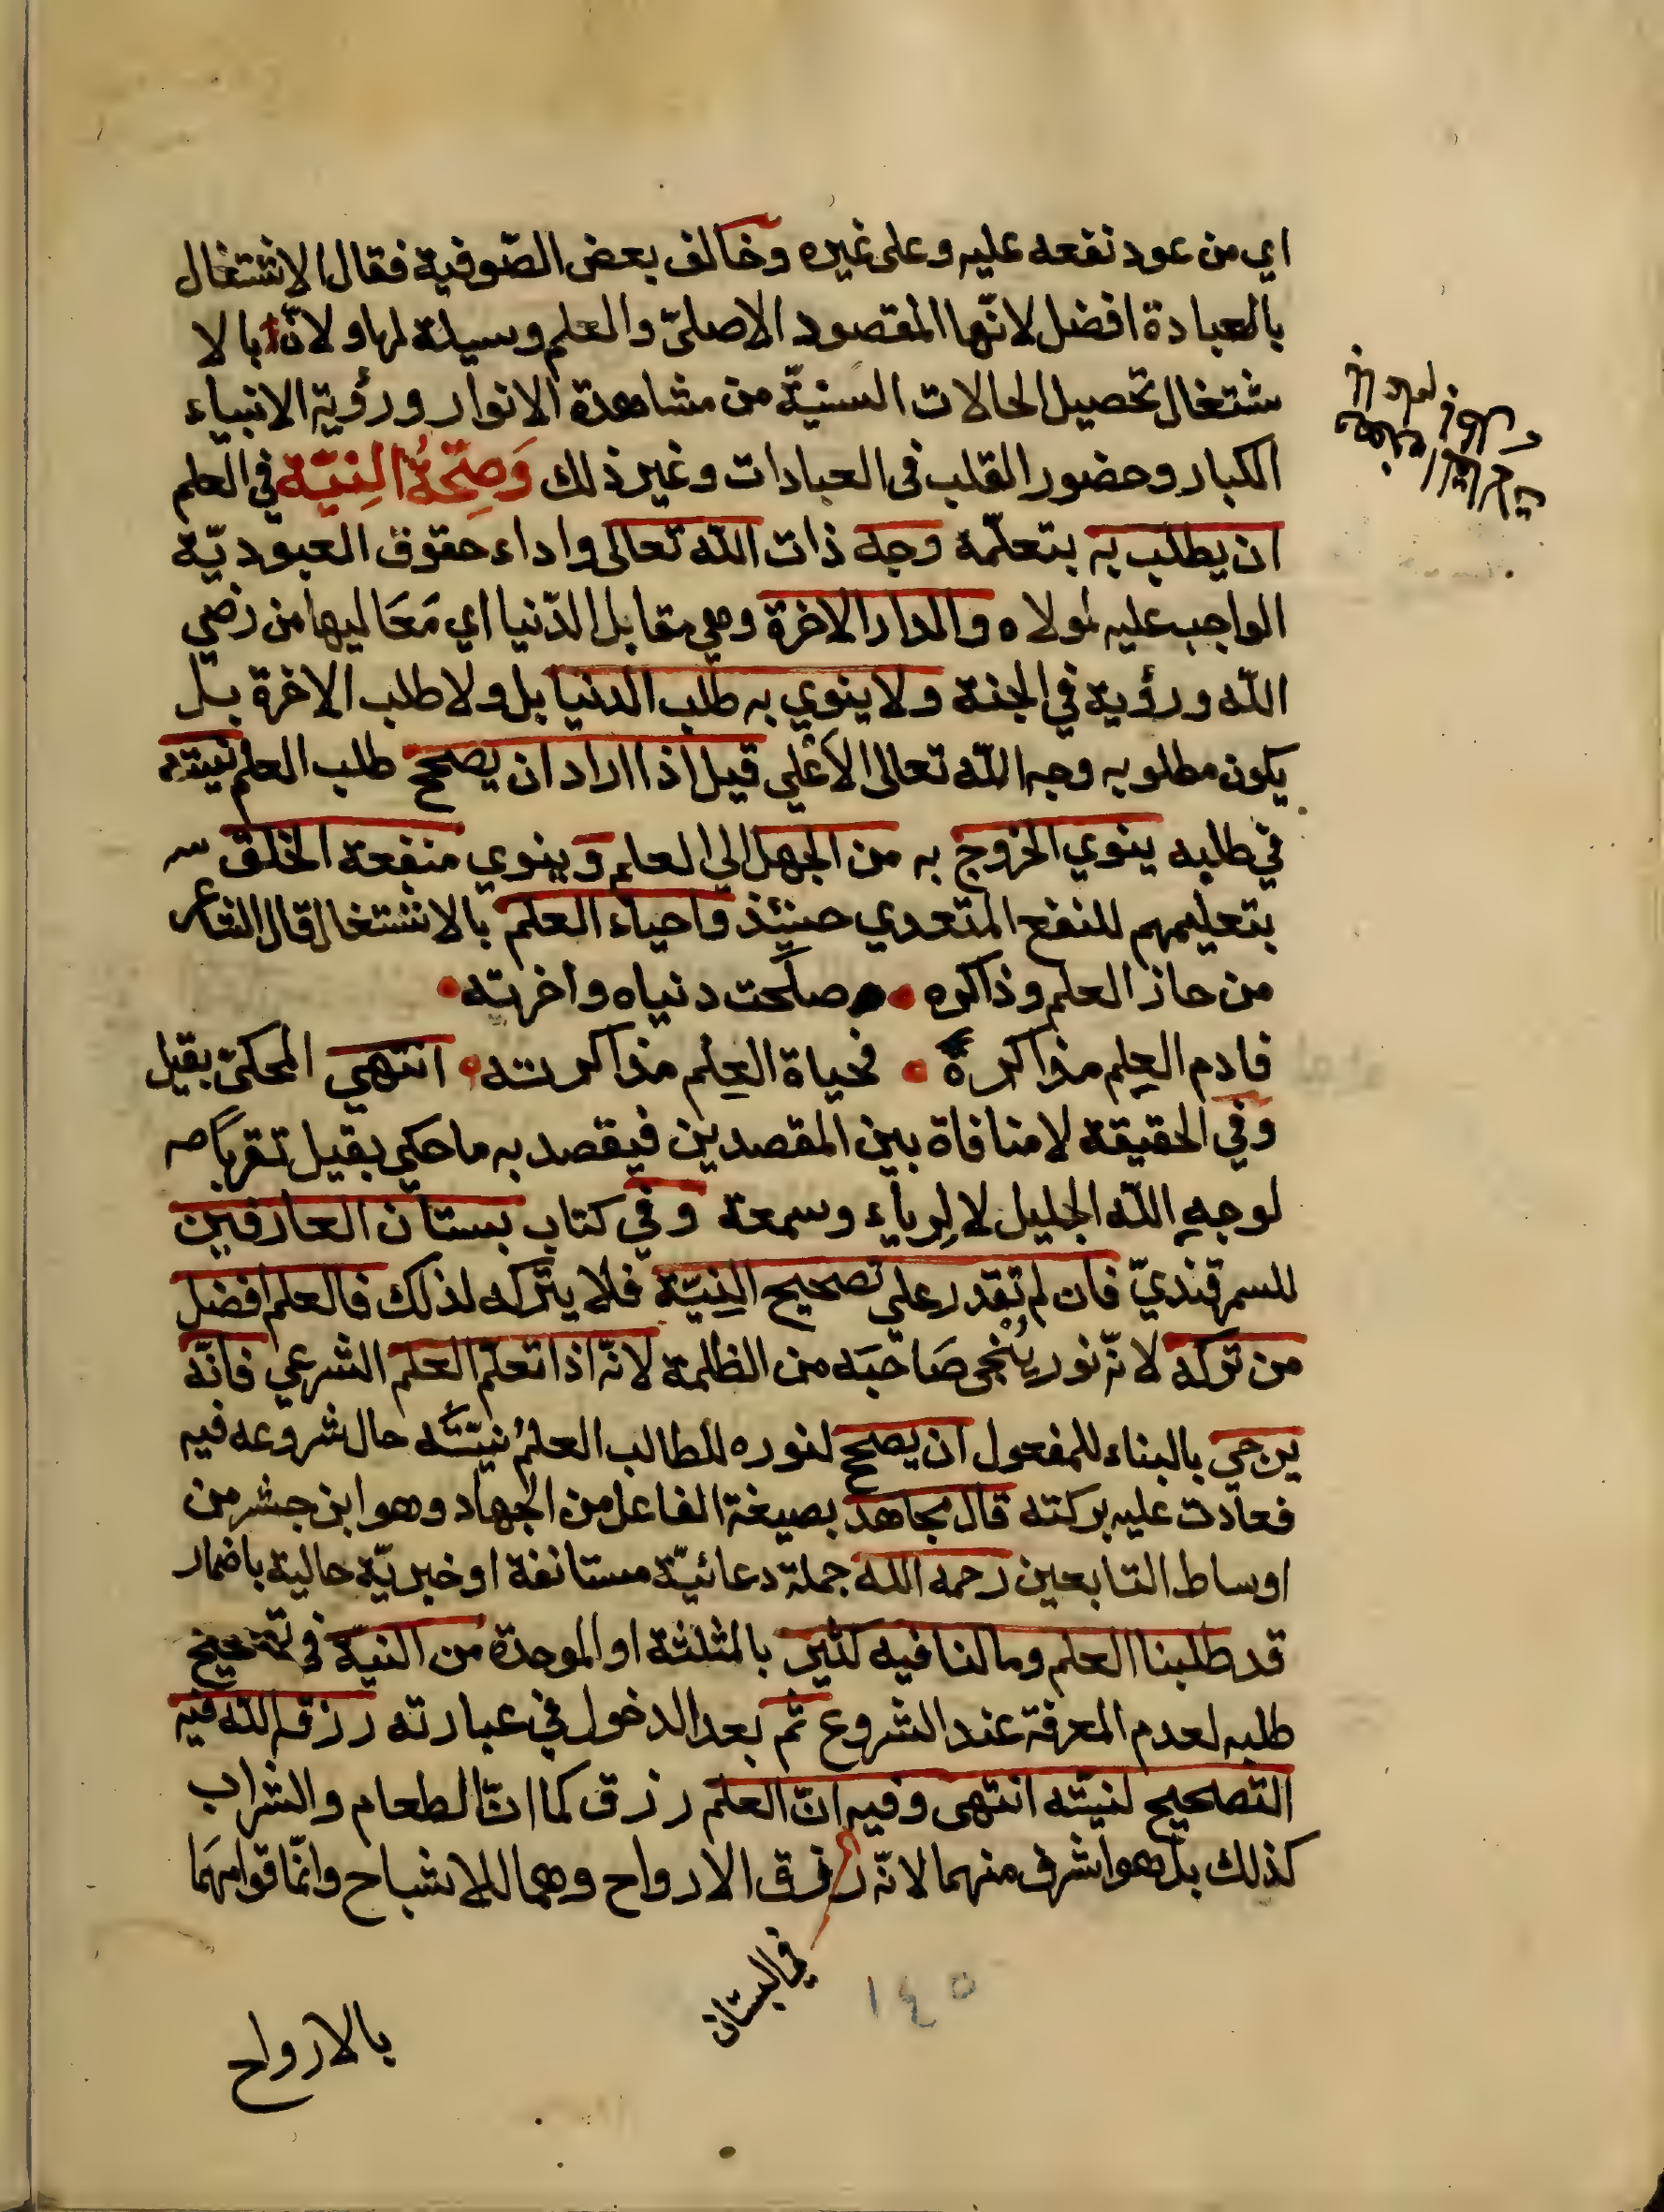 اي من عود نفعه عليه وعلى غيره وخالف بعض الصّوفية فقال الاشتغال
بالعبادة افضل لانّها المقصود الاصليّ والعلم وسيلة لها ولانّ بالا
شتغال تحصيل الحالات السنيّة من مشاهدة الانوار ورؤية الانبياء
الكبار وحضور القلب في العبادات وغير ذلك وَصِحّةُ النِيّة في العلم
ان يطلب به بتعلّمه وجه ذات اللّه تعالى واداء حقوق العبوديّة
الواجب عليه لمولاه والدار الاخرة وهي مقابل الدّنيا اي مَعَاليها من رضي
اللّه ورؤية في الجنة ولا ينوي به طلب الدنيا بل ولا طلب الاخرة بل
يكون مطلوبه وجه اللّه تعالى الاعلي قيل اذا اراد ان يصحح طلب العلم نيته
في طلبه ينوي الخروج به من الجهل الي العلم وينوي منفعة الخلق
بتعليمهم للنفع المتعدي حينئذ واحياء العلم بالاشتغال قال الشاعر
من حاز العلم وذاكره • صلحت دنياه واخرته •
فادم العِلم مذاكرة • فحياة العِلم مذاكرته • انتهي المحكيّ بقيل
وفي الحقيقة لا منافاة بين المقصدين فيقصد به ما حكي بقيل تقربًا
لوجهِ اللّه الجليل لا لِرياء وسمعة وفي كتاب بستان العارفين
للسمرقنديّ فان لم تقدر علي تصحيح النِيّة فلا يتركه لذلك فالعلم افضل
من تركه لانّه نور يُنجي صَاحبَه من الظلمة لانّه اذا تعلّم العلم الشرعي فانّه
يرجي بالبناء للمفعول ان يصحح لنوره للطالب العلمُ نيّتَه حال شروعه فيه
فعادت عليه بركته قال مجاهد بصيغة الفاعل من الجهاد وهو ابن جبر من
اوساط التابعين رحمه الله جملة دعائيّة مستانفة او خبريّة حالية باضمار
قد طلبنا العلم وما لنا فيه كثير بالمثلثة او الموحدة من النيّة في تصحيح
طلبه لعدم المعرفة عند الشروع ثم بعد الدخول في عبارته رزق اللّه فيه
التصحيح لنيّته انتهى وفيه انّ العلم رزق كما انّ الطعام والشراب
كذلك بل هو اشرف منهما لانّه رزق الارواح وهما للاشباح وانّما قوامهَما
في البستان
١٤٥
بالارواح